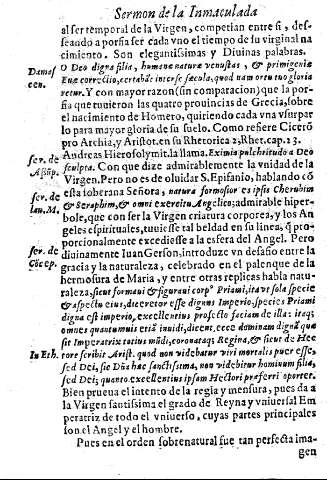 Sermon de la Inmaculada
al ser temporal de la Virgen, competian entre si, def-
seando a porfia ser cada vno el tiempo de su virginal na
cimiento. Son elegantissimas y Diuinas palabras.
Damas
cen.
O Deo digna filia, humanæ naturæ venustas, & primigeniæ
Euæ correctio, certabãt inter se sæcula, quod nam ortu tuo gloria
retur. Y con mayor razon (sin comparacion) que la por-
fia que tuuieron las quatro prouincias de Grecia, sobre
el nacimiento de Homero, quiriendo cada vna vsurpar
lo para mayor gloria de su suelo. Como refiere Ciceró
pro Archia, y Aristot. en su Rhetorica 2. Rhet. cap. 23.
ser. de
Assũp.
Andreas Hierosolymit. la llama. Eximia pulchritudo a Deo
sculpta. Con que dize admirablemente la vnidad de la
Virgen. Pero no es de oluidar S. Epifanio, hablando cõ
ser. de
lau. M.
esta soberana Señora, natura formosior es ipsis Cherubim
& Seraphim, & omni exercitu Angelico; admirable hiper-
bole, que con ser la Virgen criatura corporea, y los An
geles espirituales, tuuiesse tal beldad en su linea, q̃ pro-
porcionalmente excediesse a la esfera del Angel. Pero
ser. de
Cõcep.
diuinamente Iuan Gerson, introduze vn desafio entre la
gracia y la naturaleza, celebrado en el palenque de la
hermosura de Maria, y entre otras replicas habla natu-
raleza, sicut formaui & figuraui corp⁹ Priami, ita vt sola specie
& aspectu eius, diceretur esse dignus Imperio, species Priami
digna est imperio, excellentius profecto faciam de illa: itaq;
omnes quantumuis etiã inuidi, dicent, ecce dominam dignã quæ
sit Imperatrix totius mũdi, coronataq; Regina, & sicut de Hec
In Eth.
tore scribit Arist. quod non videbatur viri mortalis puer esse,
sed Dei, sic Dña hæc sanctissima, non videbitur hominum filia,
sed Dei; quanto excellentius ipsam Hectori præferri oportet.
Bien prueua el intento de la regia y mensura, pues da a
la Virgen santissima el grado de Reyna y vniuersal Em
peratriz de todo el vniuerso, cuyas partes principales
son el Angel y el hombre.
Pues en el orden sobrenatural fue tan perfecta ima-
gen